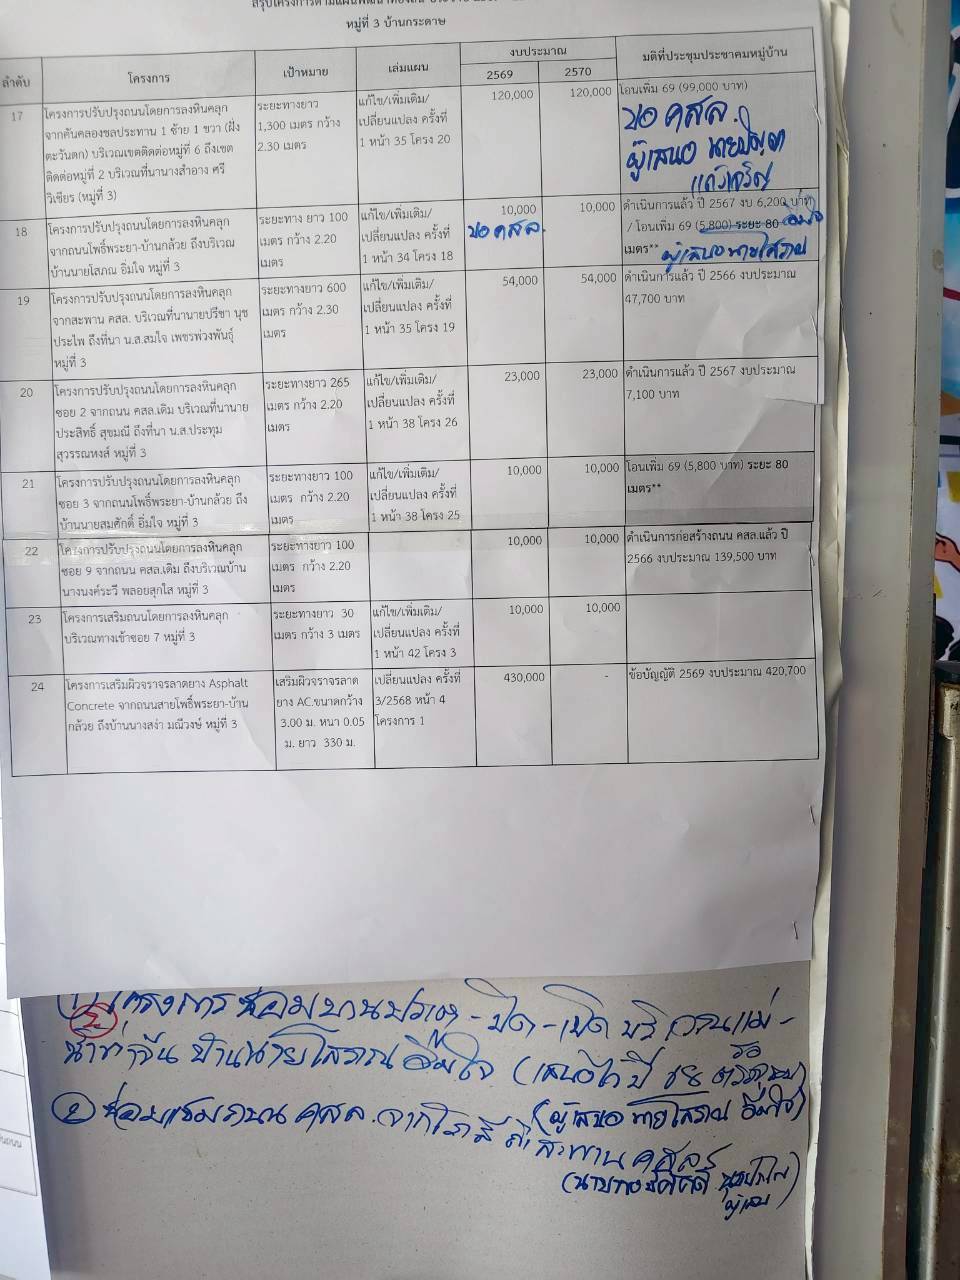 หมู่ที่ 3 บ้านกระดาษ
ลำดับ โครงการ เป้าหมาย เล่มแผน งบประมาณ มติที่ประชุมประชาคมหมู่บ้าน
2569 2570
17 โครงการปรับปรุงถนนโดยการลงหินคลุก ระยะทางยาว แก้ไข/เพิ่มเติม/ 120,000 120,000 โอนเพิ่ม 69 (99,000 บาท)
จากคันคลองชลประทาน 1 ซ้าย 1 ขวา (ฝั่ง 1,300 เมตร กว้าง เปลี่ยนแปลง ครั้งที่ ขอ คสล.
ตะวันตก) บริเวณเขตติดต่อหมู่ที่ 6 ถึงเขต 2.30 เมตร 1 หน้า 35 โครง 20 ผู้เสนอ
ติดต่อหมู่ที่ 2 บริเวณที่นานางสำอาง ศรี
วิเชียร (หมู่ที่ 3)
18 โครงการปรับปรุงถนนโดยการลงหินคลุก ระยะทาง ยาว 100 แก้ไข/เพิ่มเติม/ 10,000 10,000 ดำเนินการแล้ว ปี 2567 งบ 6,200 บาท
จากถนนโพธิ์พระยา-บ้านกล้วย ถึงบริเวณ เมตร กว้าง 2.20 เปลี่ยนแปลง ครั้งที่ ขอ คสล. / โอนเพิ่ม 69 (5,800) ระยะ 80 อิ่มใจ
บ้านนายโสภณ อิ่มใจ หมู่ที่ 3 เมตร 1 หน้า 34 โครง 18 เมตร** ผู้เสนอ นายโสภณ
19 โครงการปรับปรุงถนนโดยการลงหินคลุก ระยะทางยาว 600 แก้ไข/เพิ่มเติม/ 54,000 54,000 ดำเนินการแล้ว ปี 2566 งบประมาณ
จากสะพาน คสล. บริเวณที่นานายปรีชา นุช เมตร กว้าง 2.30 เปลี่ยนแปลง ครั้งที่ 47,700 บาท
ประไพ ถึงที่นา น.ส.สมใจ เพชรพ่วงพันธุ์ เมตร 1 หน้า 35 โครง 19
หมู่ที่ 3
20 โครงการปรับปรุงถนนโดยการลงหินคลุก ระยะทางยาว 265 แก้ไข/เพิ่มเติม/ 23,000 23,000 ดำเนินการแล้ว ปี 2567 งบประมาณ
ซอย 2 จากถนน คสล.เดิม บริเวณที่นานาย เมตร กว้าง 2.20 เปลี่ยนแปลง ครั้งที่ 7,100 บาท
ประสิทธิ์ สุขมณี ถึงที่นา น.ส.ประทุม เมตร 1 หน้า 38 โครง 26
สุวรรณหงส์ หมู่ที่ 3
21 โครงการปรับปรุงถนนโดยการลงหินคลุก ระยะทางยาว 100 แก้ไข/เพิ่มเติม/ 10,000 10,000 โอนเพิ่ม 69 (5,800 บาท) ระยะ 80
ซอย 3 จากถนนโพธิ์พระยา-บ้านกล้วย ถึง เมตร กว้าง 2.20 เปลี่ยนแปลง ครั้งที่ เมตร**
บ้านนายสมศักดิ์ อิ่มใจ หมู่ที่ 3 เมตร 1 หน้า 38 โครง 25
22 โครงการปรับปรุงถนนโดยการลงหินคลุก ระยะทางยาว 100 10,000 10,000 ดำเนินการก่อสร้างถนน คสล.แล้ว ปี
ซอย 9 จากถนน คสล.เดิม ถึงบริเวณบ้าน เมตร กว้าง 2.20 2566 งบประมาณ 139,500 บาท
นางนงค์ระวี พลอยสุกใส หมู่ที่ 3 เมตร
23 โครงการเสริมถนนโดยการลงหินคลุก ระยะทางยาว 30 แก้ไข/เพิ่มเติม/ 10,000 10,000
บริเวณทางเข้าซอย 7 หมู่ที่ 3 เมตร กว้าง 3 เมตร เปลี่ยนแปลง ครั้งที่
1 หน้า 42 โครง 3
24 โครงการเสริมผิวจราจรลาดยาง Asphalt เสริมผิวจราจรลาด เปลี่ยนแปลง ครั้งที่ 430,000 - ข้อบัญญัติ 2569 งบประมาณ 420,700
Concrete จากถนนสายโพธิ์พระยา-บ้าน ยาง AC.ขนาดกว้าง 3/2568 หน้า 4
กล้วย ถึงบ้านนางสง่า มณีวงษ์ หมู่ที่ 3 3.00 ม. หนา 0.05 โครงการ 1
ม. ยาว 330 ม.
โครงการซ่อมบานประตู-ปิด-เปิด บริเวณแม่-
น้ำท่าจีน บ้านนายโสภณ อิ่มใจ (เสนอไว้ปี
② ซ่อมแซมถนน คสล. (ผู้เสนอ นายโสภณ อิ่มใจ)
สะพาน คสล.
ผู้เสนอ